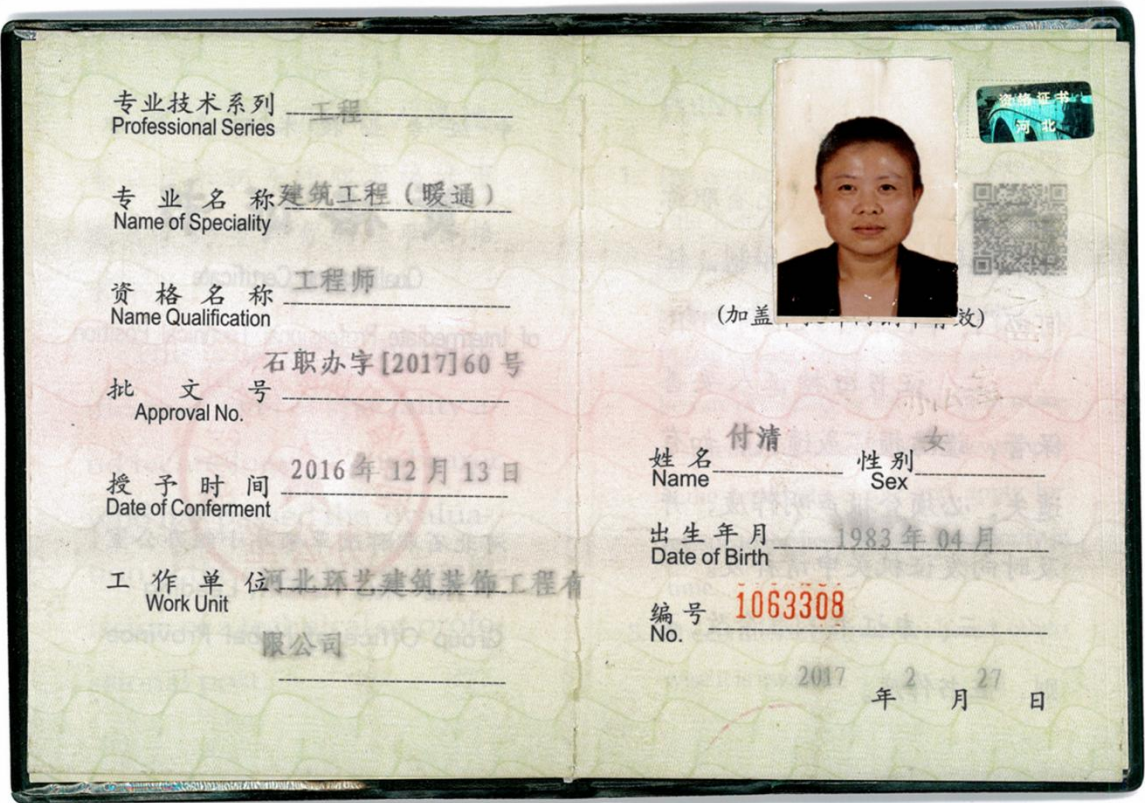 专业技术系列 工程
Professional Series
专业名称 建筑工程（暖通）
Name of Speciality
资格名称 工程师
Name Qualification
石职办字[2017]60号
批文号
Approval No.
2016年12月13日
授予时间
Date of Conferment
工作单位 河北环艺建筑装饰工程有
Work Unit
限公司
资格证书
河北
(加盖
效)
付清 女
姓名 性别
Name Sex
出生年月 1983年04月
Date of Birth
编号 1063308
No.
2017年2月27日